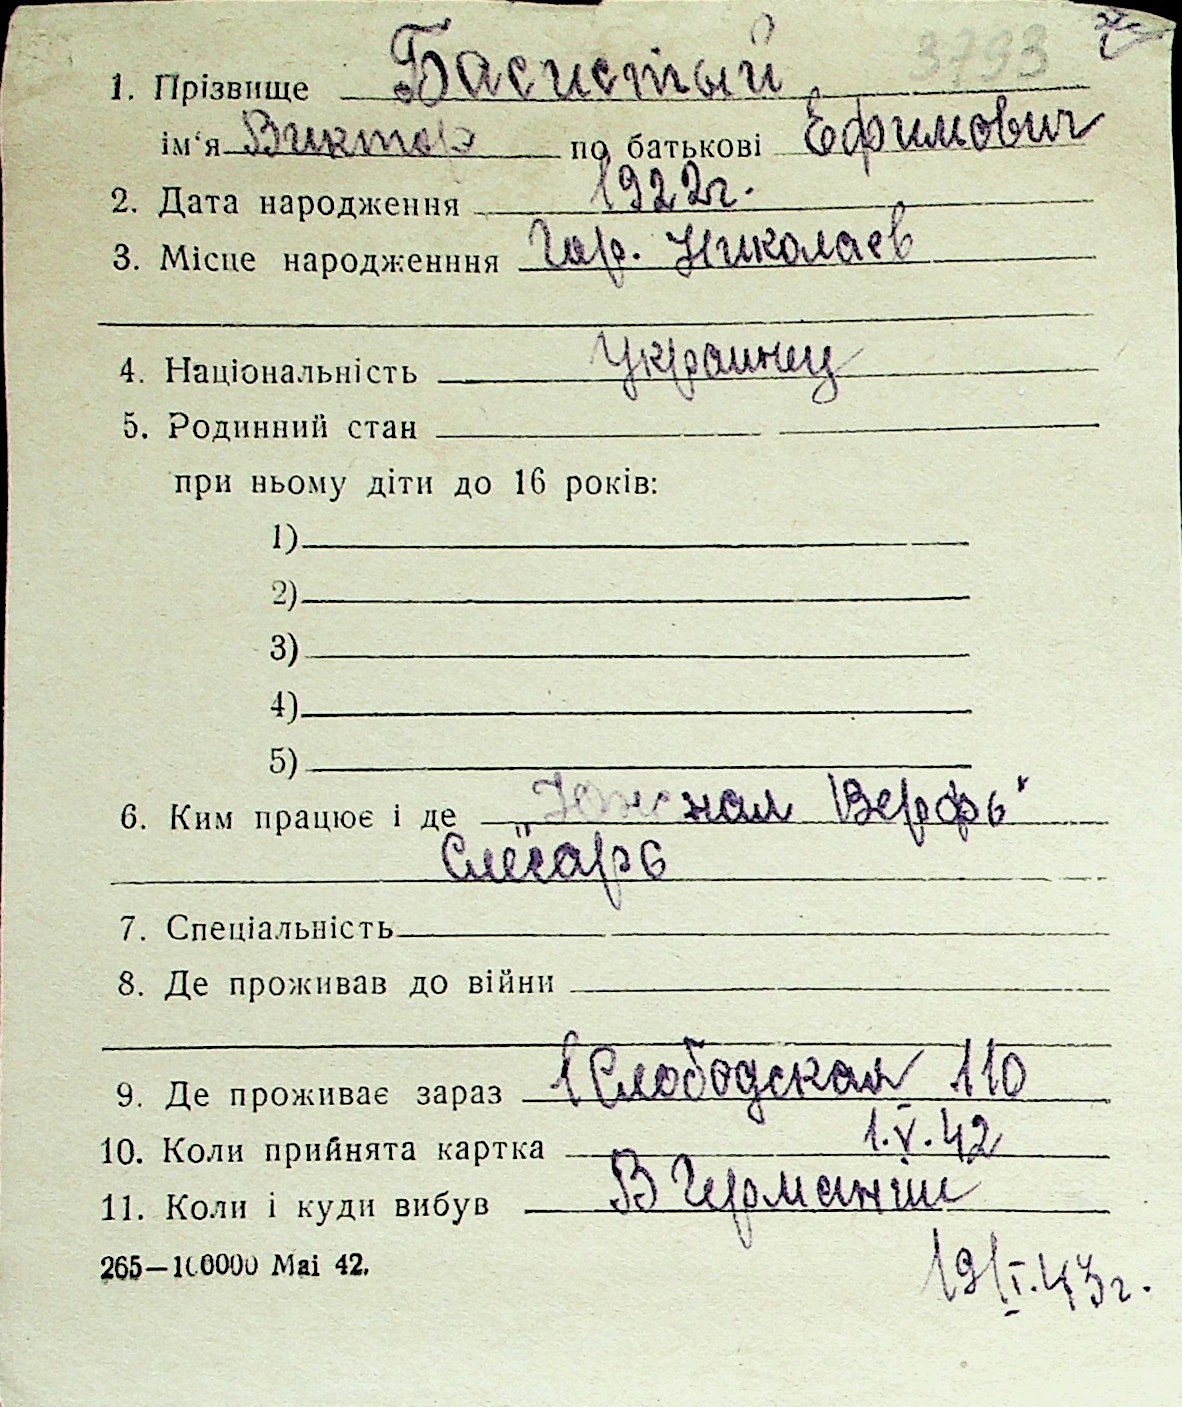 3793
1. Прізвище Басистый
ім‘я Виктор по батькові Ефимович
2. Дата народження 1922г.
3. Місце народженння Гор. Николаев
4. Національність Украинец
5. Родинний стан
при ньому діти до 16 років:
1)
2)
3)
4)
5)
6. Ким працює і де „Южная Верфь“
Слесарь
7. Спеціальність
8. Де проживав до війни
9. Де проживає зараз 1 Слободская 110
10. Коли прийнята картка 1.V.42
11. Коли і куди вибув В Германию
265—100000 Mai 42.
19/I.43г.